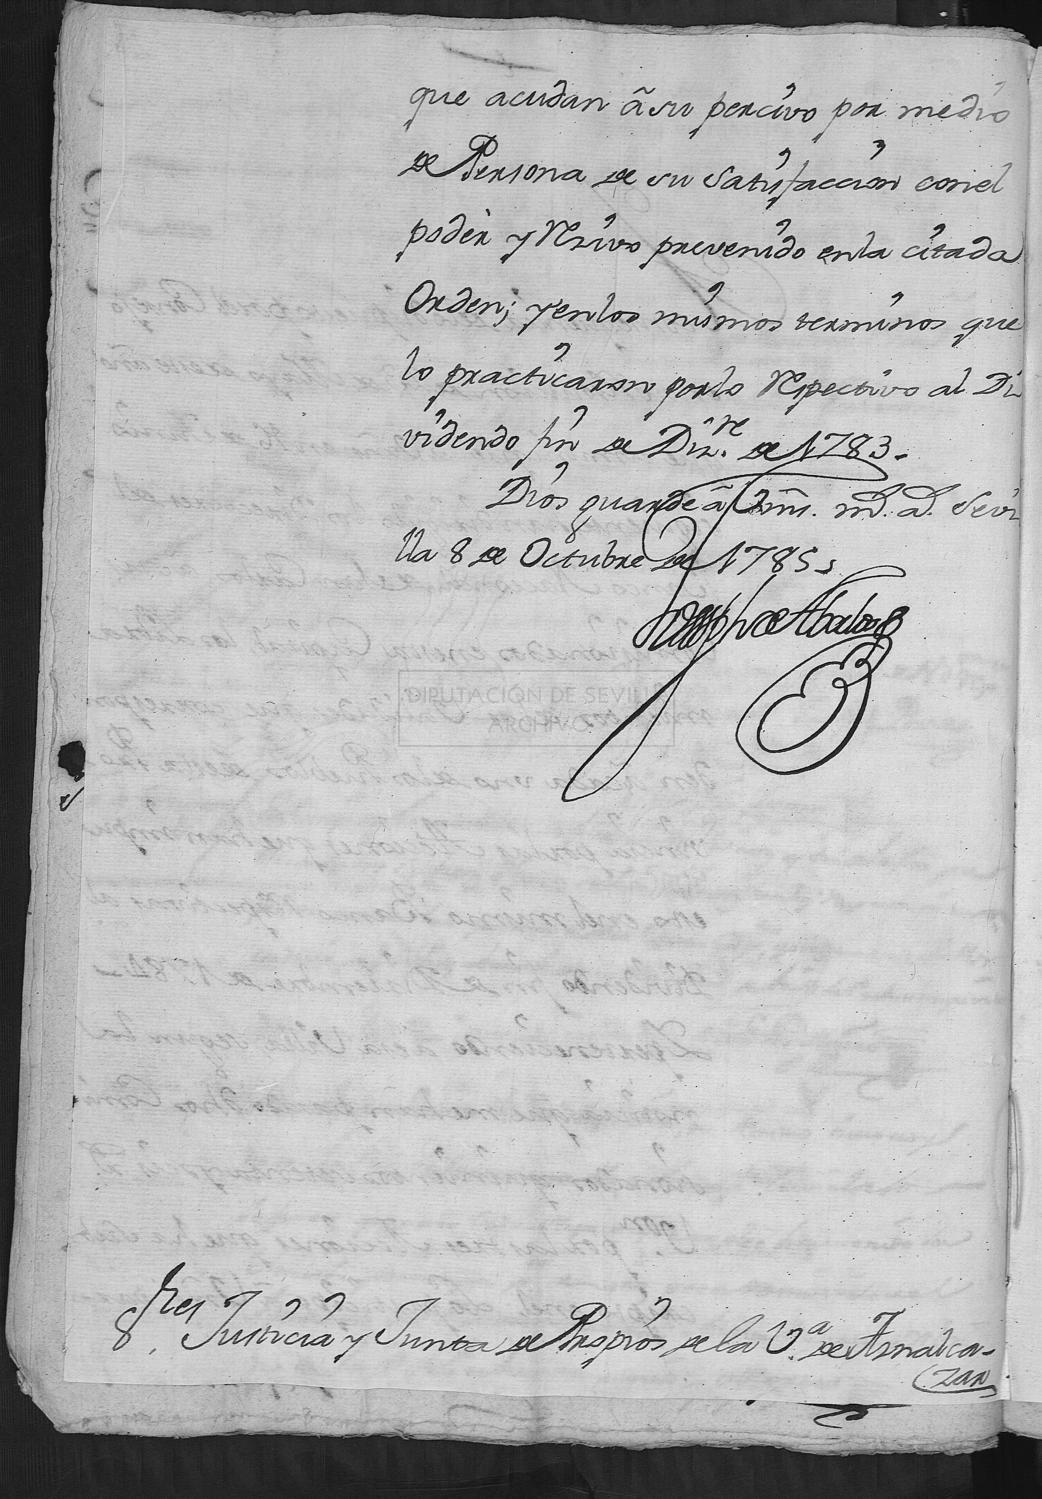 que acudan â su percivo por medio
de Persona de su Satisfaccion con el
podèr y Rzivo prevenido en la citada
Orden; y en los mismos terminos que
lo practicaron por lo Respectivo al Di
videndo fin de Diz.re de 1783.
Dios guarde â Vms. ms. as. Sevi
lla 8 de Octubre de 1785,,
Joseph de Abalos
DIPUTACIÓN DE SEVILLA
ARCHIVO
Sres. Justicia y Junta de Propios de la V.a de Aznalca-
zar